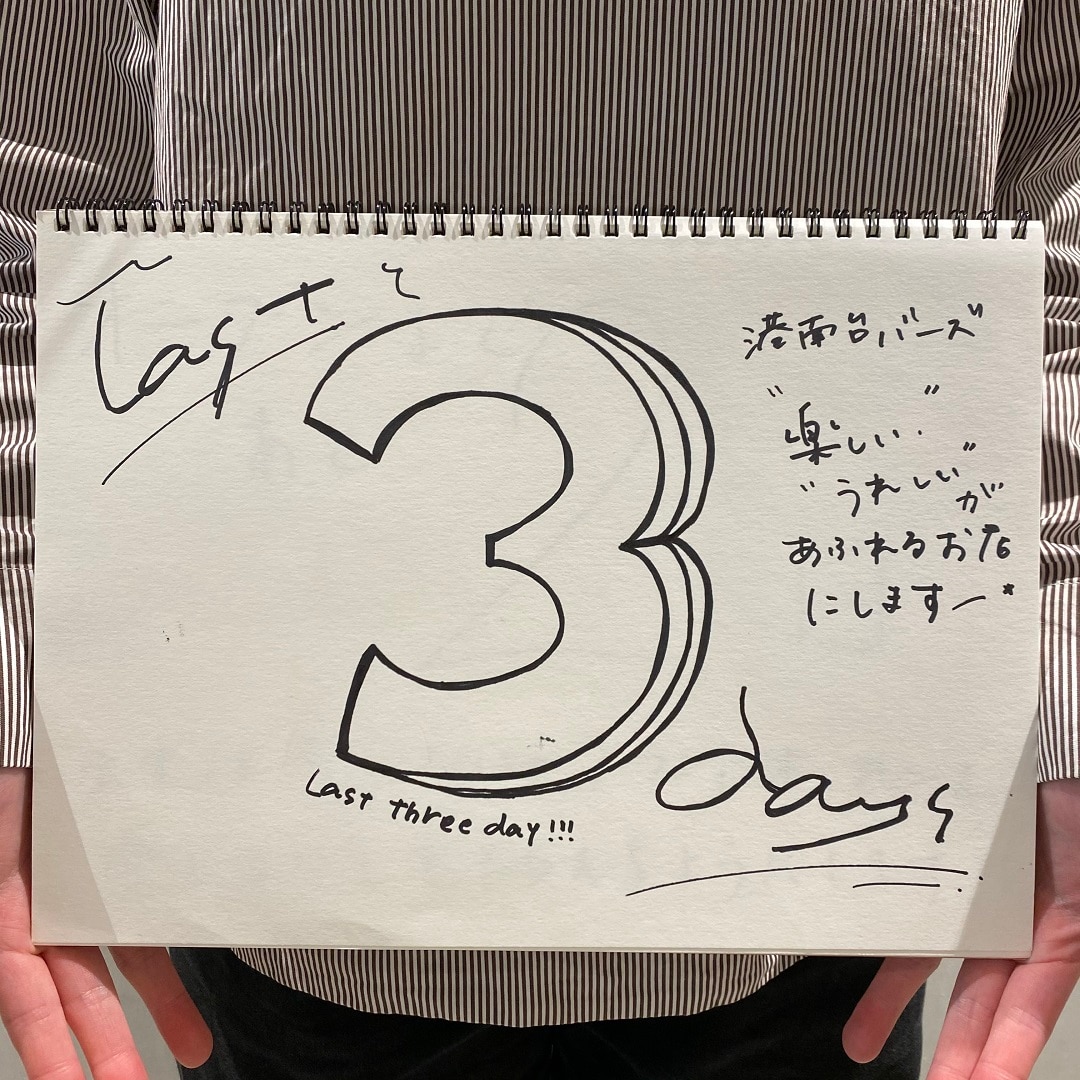 Last
3
days
Last three day!!!
港南台バーズ
"楽しい"
"うれしい"が
あふれるお店
にしますー*